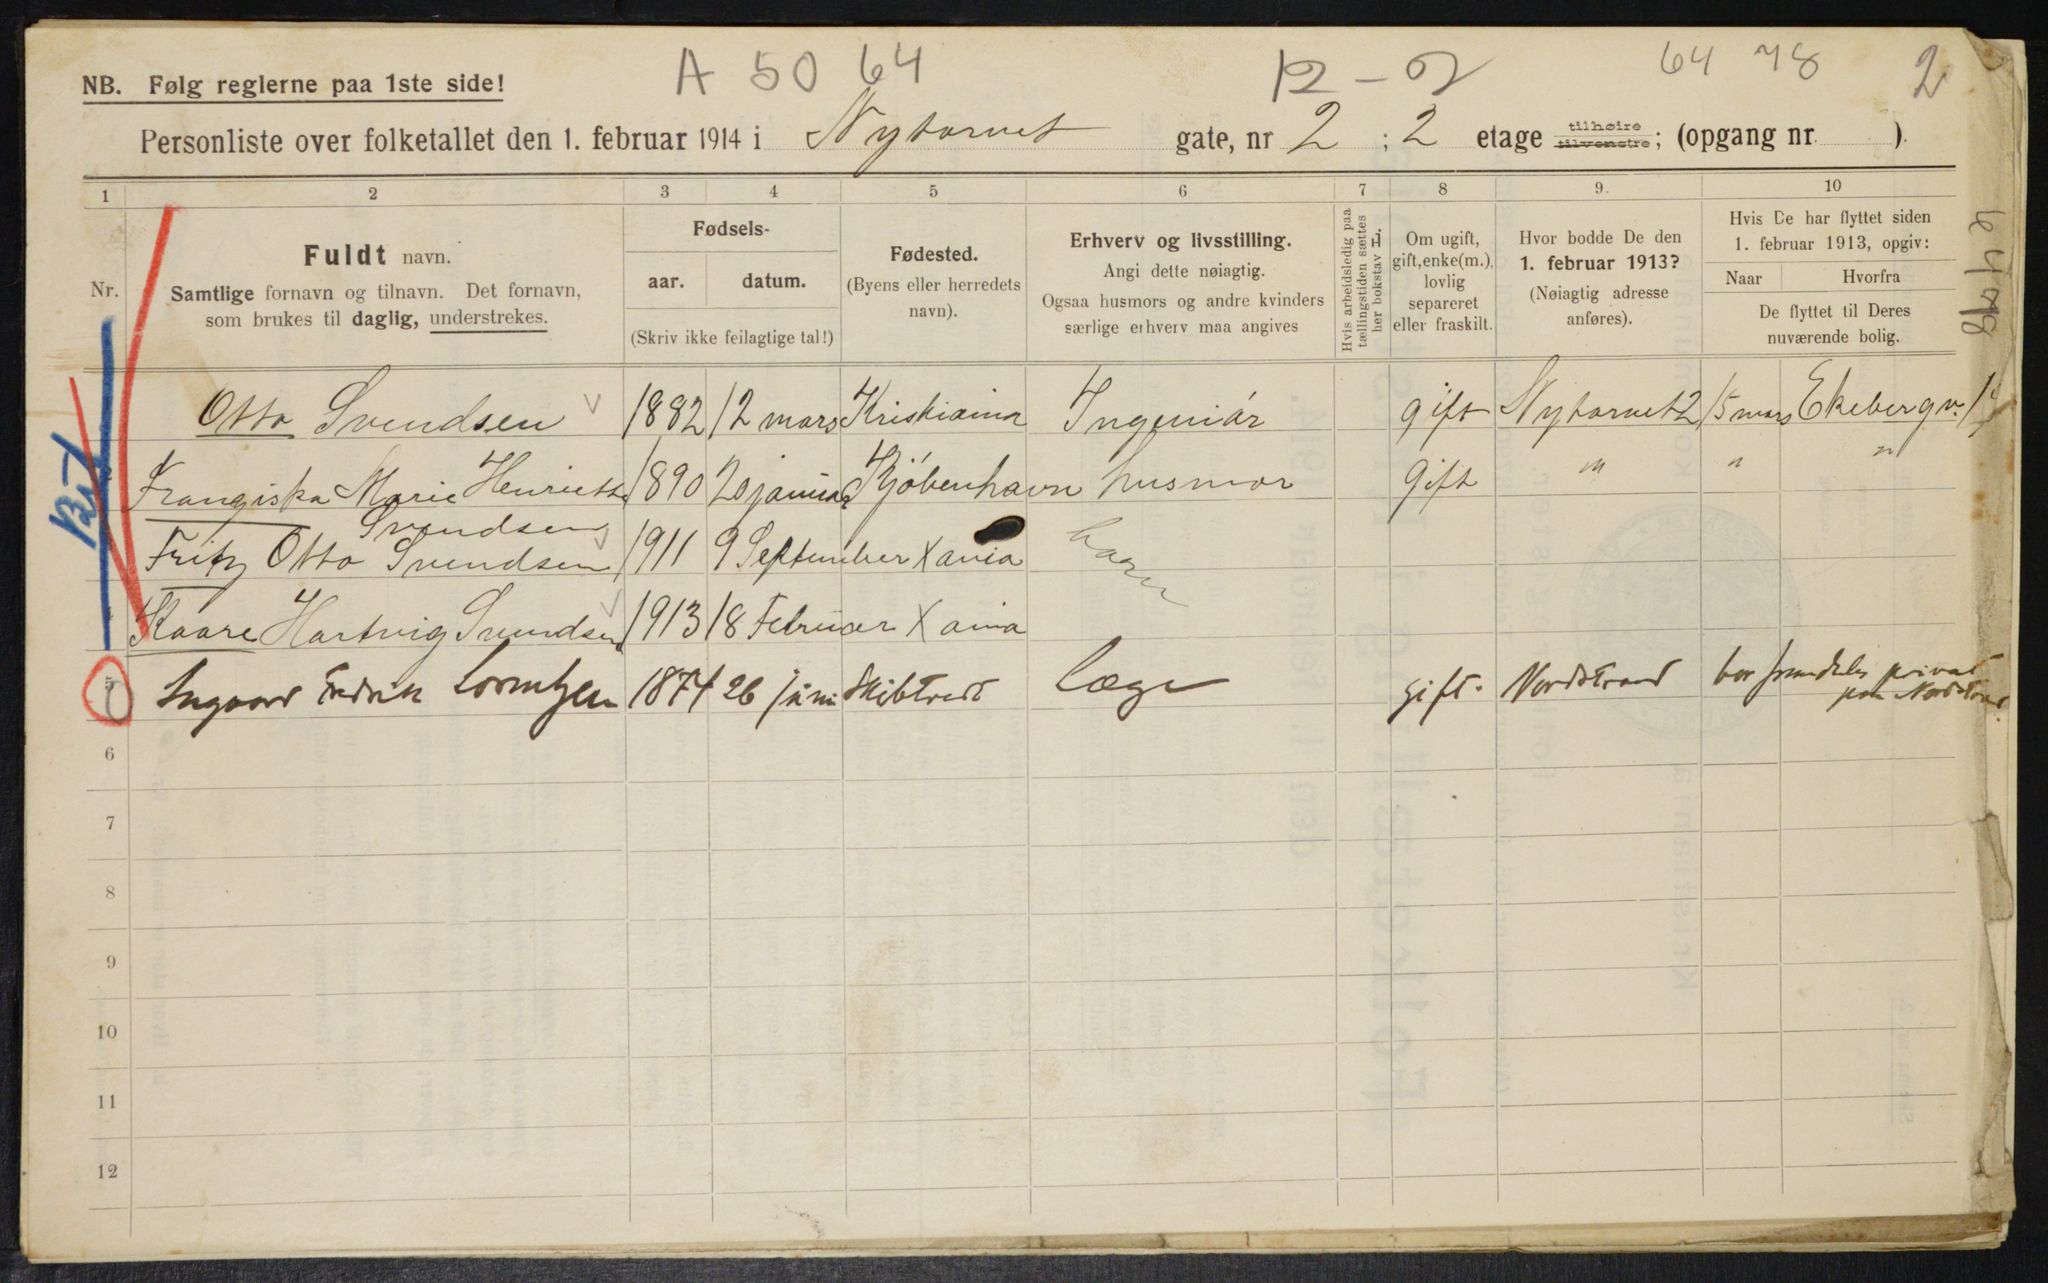 A 50 64 12-2 64 78 2
NB. Følg reglerne paa 1ste side!
Personliste over folketallet den 1. februar 1914 i Nytorvet gate, nr 2 ; 2 etage tilhøire tilvenstre; (opgang nr. ).
1 2 3 4 5 6 7 8 9. 10
Nr.
Fuldt navn.
Samtlige fornavn og tilnavn. Det fornavn,
som brukes til daglig, understrekes.
Fødsels-
aar. datum.
(Skriv ikke feilagtige tal!)
Fødested.
(Byens eller herredets
navn).
Erhverv og livsstilling.
Angi dette nøiagtig.
Ogsaa husmors og andre kvinders
særlige erhverv maa angives
Hvis arbeidsledig paa
tællingstiden sættes
her bokstav L.
Om ugift,
gift, enke(m.),
lovlig
separeret
eller fraskilt.
Hvor bodde De den
1. februar 1913?
(Nøiagtig adresse
anføres).
Hvis De har flyttet siden
1. februar 1913, opgiv:
Naar Hvorfra
De flyttet til Deres
nuværende bolig.
6478
Otto Svendsen 1882 12 mars Kristiania Ingeniør gift Nytorvet 2 15 mars Ekebergv. 1
Franziska Marie Henriette 1890 20 januar Kjøbenhavn husmor gift " " "
Svendsen
Fritz Otto Svendsen 1911 9 September Xania barn
Kaare Hartvig Svendsen 1913 18 Februar Xania
5 Ingvard Fredrik Lorentzen 1874 26 juni Skibtvedt læge gift. Nordstrand bor fremdeles privat
paa Nordstrand.
6
7
8
9
10
11
12